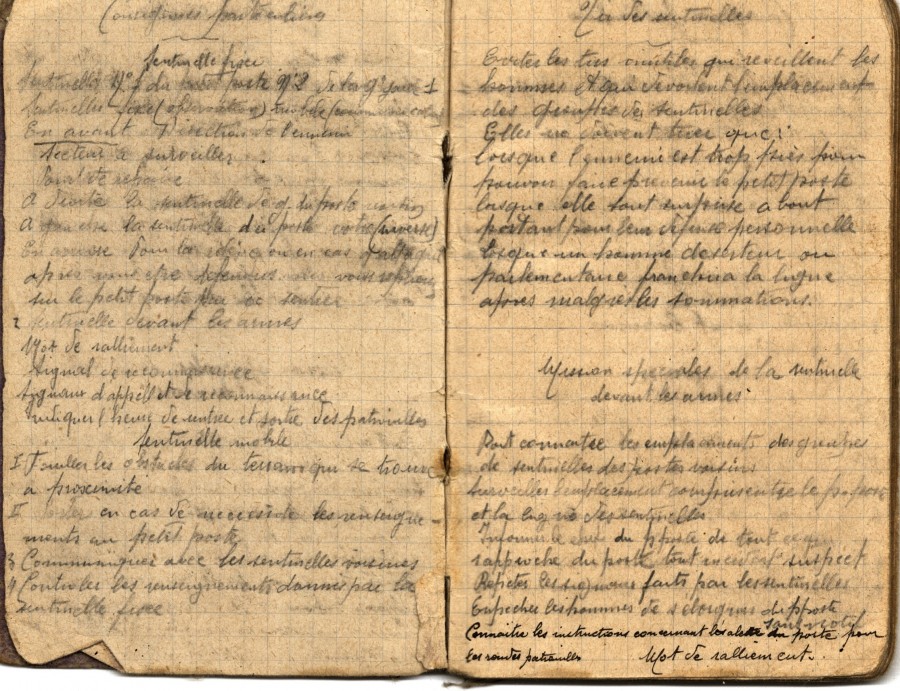 Consignes particulières
Sentinelle fixe
Sentinelle N° 1 du petit poste N°2 de la g^d garde 1
Sentinelles fixe (observation) mobile (communication)
En avant Direction de l'ennemi
Secteur à surveiller
Point de repère
A droite la sentinelle de g. du poste
A gauche la sentinelle d. du poste votre (inverse)
En arrière
après vous vous replierez
sur le petit poste par ce sentier
2 Sentinelle devant les armes
Mot de ralliement
Signal de reconnaissance
Signaux d'appel et de reconnaissance
Indiquer l'heure de entrée et sortie des patrouilles
Sentinelle mobile
I Fouiller les obstacles du terrain qui se trouve
a proximité
II en cas de necessité les renseigne-
ments au petit poste
3 Communiquer avec les sentinelles voisines
4 Controler les renseignements donner par la
sentinelle fixe
Tir des sentinelles
Eviter les tirs inutiles qui reveillent les
hommes et qui devoilent l'emplacement
des groupes de sentinelles
Elles ne doivent tirer que:
lorsque l'ennemi est trop près pour
pouvoir faire prevenir le petit poste
lorsque elle sont surprise a bout
portant pour leur defense personnelle
Lorsque un homme deserteur ou
parlementaire franchira la ligne
après malgrés les sommations.
Mission speciales de la sentinelle
devant les armes
Doit connaitre les emplacements des
de sentinelles des postes voisins
Surveiller l'emplacement comprise entre le p poste
et la ligne des sentinelles
Informer le chef du p poste de tout ce qui
rapproche du poste tout incident suspect
Repéter les signaux faits par les sentinelles
Empecher les hommes de s'eloigner du p poste
sans motif
Connaitre les instructions concernant les du poste pour
les rondes patrouilles Mot de ralliement.